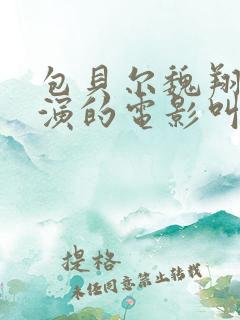 包貝尔魏翔
演的电影叫
提格
未经同意禁止转载